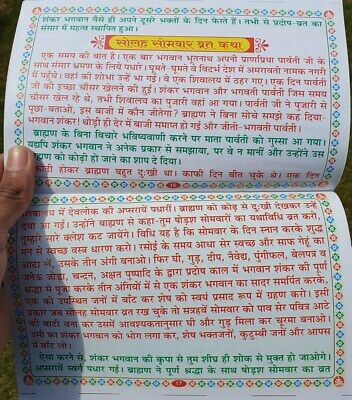 शंकर भगवान वैसे ही अपने दूसरे भक्तों के दिन फेरते हैं। तभी से प्रदोष-व्रत का
संसार में महत्व स्थापित हुआ।
सोलह सोमवार व्रत कथा
एक समय की बात है। एक बार भगवान भूतनाथ अपनी प्राणप्रिया पार्वती जी के
साथ संसार भ्रमण के लिये पधारे। घूमते-घूमते वे विदर्भ देश में अमरावती नामक नगरी
में पहुँचे। वहाँ की शोभा उन्हें भा गई। वे एक शिवालय में ठहर गए। एक दिन पार्वती
जी को इच्छा चौसर खेलने की हुई। शंकर भगवान और भगवती पार्वती जिस समय
चौसर खेल रहे थे, तभी शिवालय का पुजारी वहां आ गया। पार्वती जी ने पुजारी से
पूछा-बताओ, इस बाजी में कौन जीतेगा? ब्राह्मण ने बिना सोचे समझे कह दिया-
भगवान शंकर! थोड़ी ही देर में बाजी समाप्त हो गई और जीती-भगवती पार्वती।
ब्राह्मण के बिना विचारे भविष्यवाणी करने पर माता पार्वती को गुस्सा आ गया।
यद्यपि शंकर भगवान ने अनेक प्रकार से समझाया, पर वे न मानीं और उन्होंने उस
ब्राह्मण को कोढ़ी हो जाने का शाप दे दिया।
कोढ़ी होकर ब्राह्मण बहुत दुःखी था। काफी दिन बीत चुके थे। एक दिन
16
शिवालय में देवलोक की अप्सराएँ पधारीं। ब्राह्मण को कोढ़ से दुःखी देखकर उन्हें
दया आ गई। उन्होंने ब्राह्मण से कहा-तुम षोड्श सोमवारों का यथाविधि व्रत करो,
तुम्हारे सारे क्लेश कट जायेंगे। विधि है कि सोमवार के दिन स्नान करके शुद्ध
मन से स्वच्छ वस्त्र धारण करो। रसोई के समय आधा सेर स्वच्छ और साफ गेहूं का
आटा लो। उसके तीन अंगी बनाओ। फिर घी, गुड़, दीप, नैवेद्य, पुंगीफल, बेलपत्र व
जनेऊ जोड़ा, चन्दन, अक्षत पुष्पादि के द्वारा प्रदोष काल में भगवान शंकर की पूर्ण
श्रद्धा से पूजा करके तीन अंगियों में से एक भगवान शंकर को सादर समर्पित करके,
एक को उपस्थित जनों में बाँट कर शेष को स्वयं प्रसाद रूप में ग्रहण करो। इसी
प्रकार जब सोलह सोमवार व्रत रख चुको तो सत्रहवें सोमवार को पाव सेर पवित्र आटे
की बाटी बना कर उसमें आवश्यकतानुसार घी और गुड़ मिला कर चूरमा बनाओ।
उसी का शंकर भगवान को भोग लगा कर, शेष भक्तजनों, कुटुम्बी जनों और आपस
में बाँट लो।
ऐसा करने से, शंकर भगवान की कृपा से तुम शीघ्र ही शोक से मुक्त हो जाओगे।
अप्सरायें स्वर्ग पधार गई। ब्राह्मण ने पूर्ण श्रद्धा के साथ षोड्श सोमवार का व्रत
17